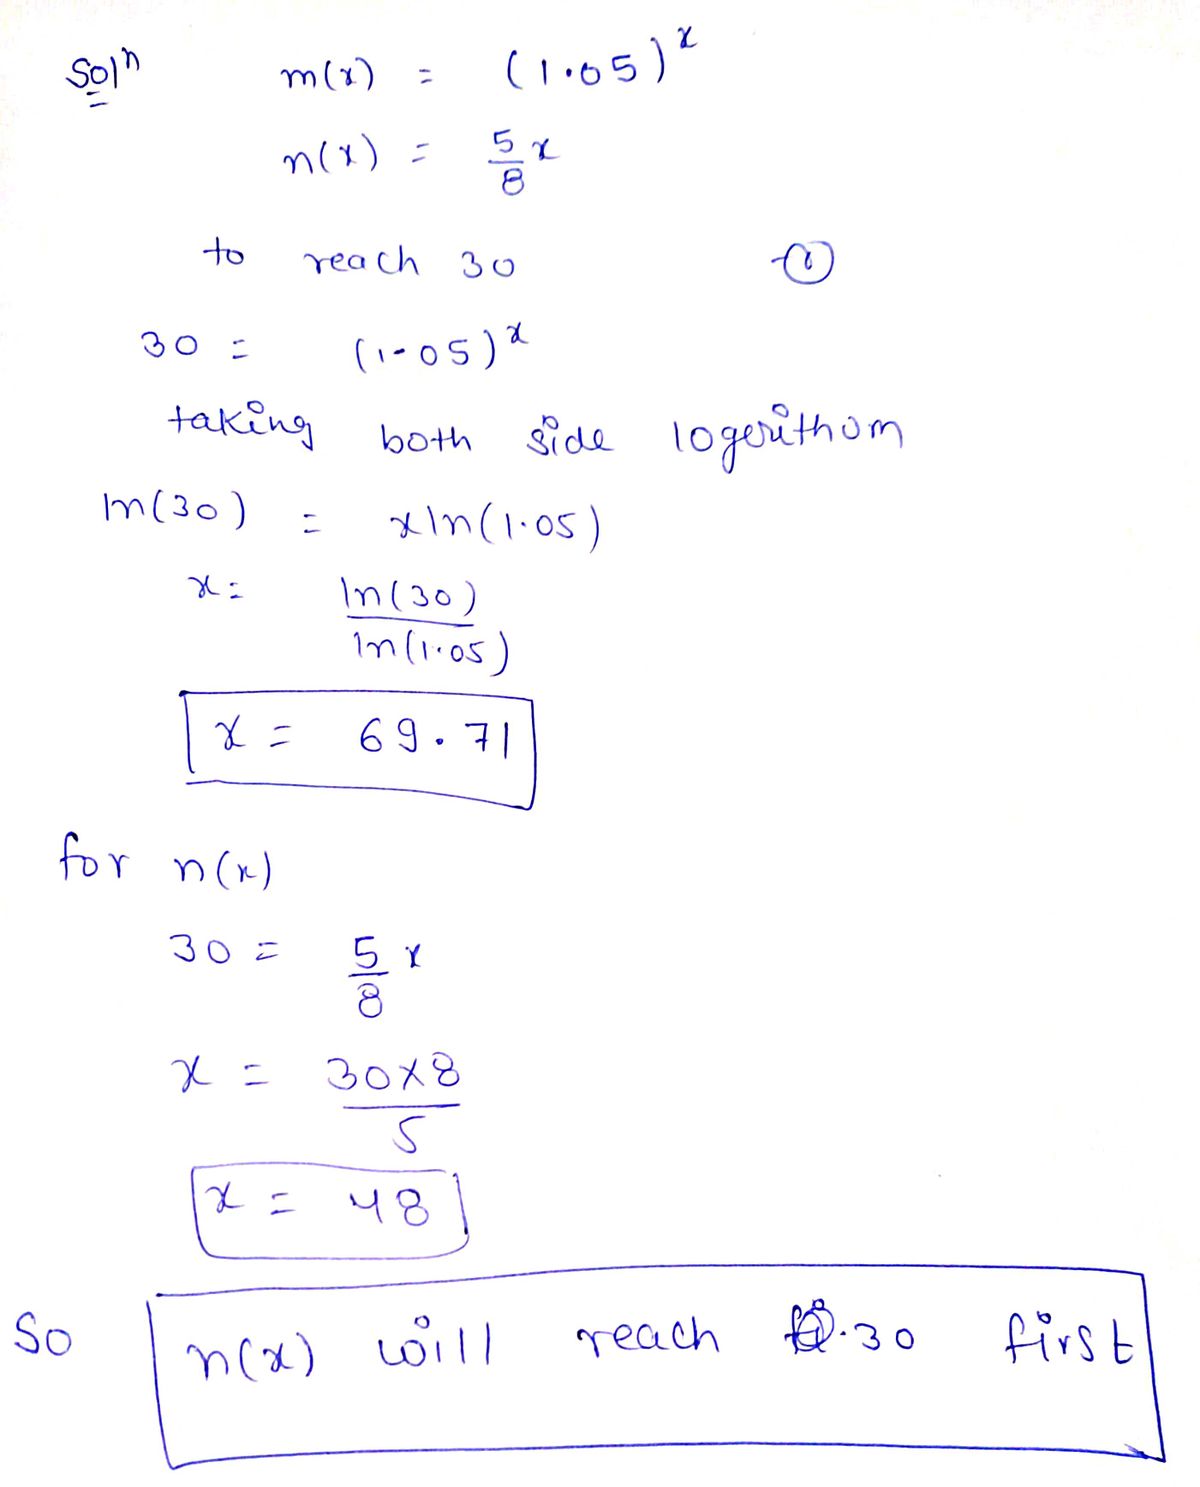 Solⁿ m(x) = (1.05)ˣ
n(x) = 5/8 x
to reach 30 ①
30 = (1.05)ˣ
taking both side logerithom
ln(30) = xln(1.05)
x = ln(30)/ln(1.05)
x = 69.71
for n(x)
30 = 5/8 x
x = 30×8/5
x = 48
So n(x) will reach 30 first